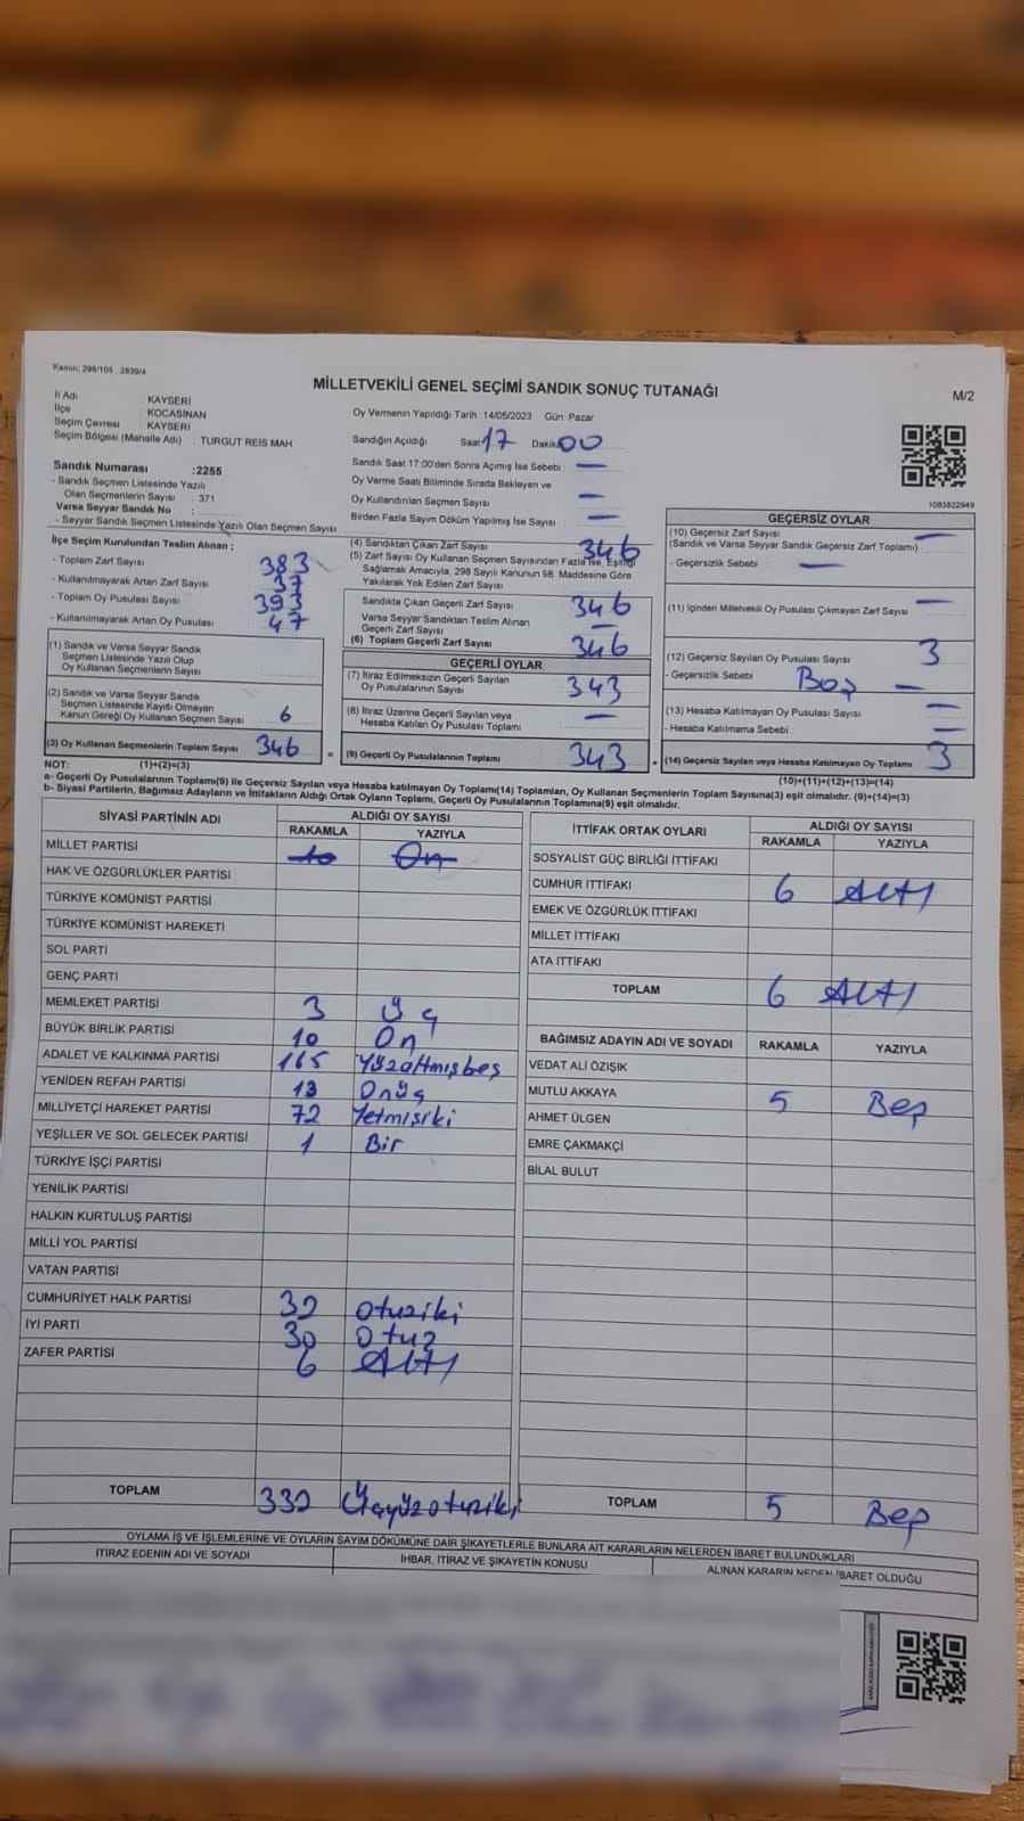 Kanun: 298/105 , 2839/4
MİLLETVEKİLİ GENEL SEÇİMİ SANDIK SONUÇ TUTANAĞI
M/2
İl Adı KAYSERİ
İlçe KOCASİNAN
Seçim Çevresi KAYSERİ
Seçim Bölgesi (Mahalle Adı) : TURGUT REİS MAH
Sandık Numarası :2255
- Sandık Seçmen Listesinde Yazılı
Olan Seçmenlerin Sayısı : 371
Varsa Seyyar Sandık No :
- Seyyar Sandık Seçmen Listesinde Yazılı Olan Seçmen Sayısı
Oy Vermenin Yapıldığı Tarih :14/05/2023 Gün: Pazar
Sandığın Açıldığı Saat 17 Dakika 00
Sandık Saat 17:00'den Sonra Açılmış İse Sebebi —
Oy Verme Saati Bitiminde Sırada Bekleyen ve
Oy Kullandırılan Seçmen Sayısı —
Birden Fazla Sayım Döküm Yapılmış İse Sayısı —
1083822949
İlçe Seçim Kurulundan Teslim Alınan ;
- Toplam Zarf Sayısı 383
- Kullanılmayarak Artan Zarf Sayısı 37
- Toplam Oy Pusulası Sayısı 393
- Kullanılmayarak Artan Oy Pusulası 47
(1) Sandık ve Varsa Seyyar Sandık
Seçmen Listesinde Yazılı Olup
Oy Kullanan Seçmenlerin Sayısı
(2) Sandık ve Varsa Seyyar Sandık
Seçmen Listesinde Kayıtlı Olmayan
Kanun Gereği Oy Kullanan Seçmen Sayısı 6
(3) Oy Kullanan Seçmenlerin Toplam Sayısı 346
(4) Sandıktan Çıkan Zarf Sayısı 346
(5) Zarf Sayısı Oy Kullanan Seçmen Sayısından Fazla İse, Eşitliği
Sağlamak Amacıyla, 298 Sayılı Kanunun 98. Maddesine Göre
Yakılarak Yok Edilen Zarf Sayısı
Sandıkta Çıkan Geçerli Zarf Sayısı 346
Varsa Seyyar Sandıktan Teslim Alınan
Geçerli Zarf Sayısı —
(6) Toplam Geçerli Zarf Sayısı 346
GEÇERLİ OYLAR
(7) İtiraz Edilmeksizin Geçerli Sayılan
Oy Pusulalarının Sayısı 343
(8) İtiraz Üzerine Geçerli Sayılan veya
Hesaba Katılan Oy Pusulası Toplamı —
(9) Geçerli Oy Pusulalarının Toplamı 343
GEÇERSİZ OYLAR
(10) Geçersiz Zarf Sayısı —
(Sandık ve Varsa Seyyar Sandık Geçersiz Zarf Toplamı)
- Geçersizlik Sebebi —
(11) İçinden Milletvekili Oy Pusulası Çıkmayan Zarf Sayısı —
(12) Geçersiz Sayılan Oy Pusulası Sayısı 3
- Geçersizlik Sebebi Boş —
(13) Hesaba Katılmayan Oy Pusulası Sayısı —
- Hesaba Katılmama Sebebi —
(14) Geçersiz Sayılan veya Hesaba Katılmayan Oy Toplamı 3
NOT: (1)+(2)=(3)
(10)+(11)+(12)+(13)=(14)
a- Geçerli Oy Pusulalarının Toplamı(9) ile Geçersiz Sayılan veya Hesaba katılmayan Oy Toplamı(14) Toplamları, Oy Kullanan Seçmenlerin Toplam Sayısına(3) eşit olmalıdır. (9)+(14)=(3)
b- Siyasi Partilerin, Bağımsız Adayların ve İttifakların Aldığı Ortak Oyların Toplamı, Geçerli Oy Pusulalarının Toplamına(9) eşit olmalıdır.
SİYASİ PARTİNİN ADI ALDIĞI OY SAYISI
RAKAMLA YAZIYLA
MİLLET PARTİSİ 10 On
HAK VE ÖZGÜRLÜKLER PARTİSİ
TÜRKİYE KOMÜNİST PARTİSİ
TÜRKİYE KOMÜNİST HAREKETİ
SOL PARTİ
GENÇ PARTİ
MEMLEKET PARTİSİ 3 Üç
BÜYÜK BİRLİK PARTİSİ 10 On
ADALET VE KALKINMA PARTİSİ 165 Yüzaltmışbeş
YENİDEN REFAH PARTİSİ 13 Onüç
MİLLİYETÇİ HAREKET PARTİSİ 72 Yetmişiki
YEŞİLLER VE SOL GELECEK PARTİSİ 1 Bir
TÜRKİYE İŞÇİ PARTİSİ
YENİLİK PARTİSİ
HALKIN KURTULUŞ PARTİSİ
MİLLİ YOL PARTİSİ
VATAN PARTİSİ
CUMHURİYET HALK PARTİSİ 32 Otuziki
İYİ PARTİ 30 Otuz
ZAFER PARTİSİ 6 Altı
TOPLAM 332 Üçyüzotuziki
İTTİFAK ORTAK OYLARI ALDIĞI OY SAYISI
RAKAMLA YAZIYLA
SOSYALİST GÜÇ BİRLİĞİ İTTİFAKI
CUMHUR İTTİFAKI 6 Altı
EMEK VE ÖZGÜRLÜK İTTİFAKI
MİLLET İTTİFAKI
ATA İTTİFAKI
TOPLAM 6 Altı
BAĞIMSIZ ADAYIN ADI VE SOYADI RAKAMLA YAZIYLA
VEDAT ALİ ÖZIŞIK
MUTLU AKKAYA 5 Beş
AHMET ÜLGEN
EMRE ÇAKMAKÇI
BİLAL BULUT
TOPLAM 5 Beş
OYLAMA İŞ VE İŞLEMLERİNE VE OYLARIN SAYIM DÖKÜMÜNE DAİR ŞİKAYETLERLE BUNLARA AİT KARARLARIN NELERDEN İBARET BULUNDUKLARI
İTİRAZ EDENİN ADI VE SOYADI İHBAR, İTİRAZ VE ŞİKAYETİN KONUSU ALINAN KARARIN NEDEN İBARET OLDUĞU